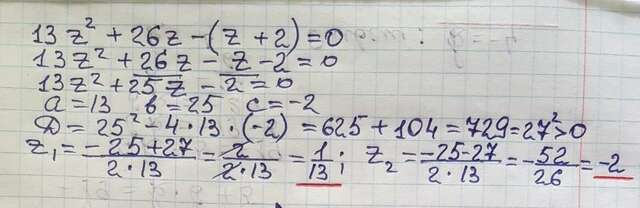 13z² + 26z - (z + 2) = 0
13z² + 26z - z - 2 = 0
13z² + 25z - 2 = 0
a = 13 b = 25 c = -2
D = 25² - 4 · 13 · (-2) = 625 + 104 = 729 = 27² > 0
z₁ = (-25 + 27)/(2 · 13) = 2/(2 · 13) = 1/13 ; z₂ = (-25 - 27)/(2 · 13) = -52/26 = -2